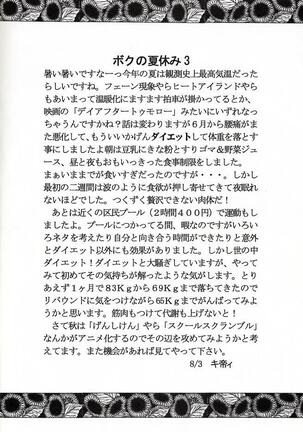 ボクの夏休み3
暑い暑いですなーっ今年の夏は観測史上最高気温だった
らしいですね。フェーン現象やらヒートアイランドやら
もあいまって温暖化にますます拍車が掛かってるとか、
映画の「デイアフタートゥモロー」みたいにいずれなっ
ちゃうんですかね？話は変わりますが６月から腰痛がま
た悪化して、もういいかげんダイエットして体重を落とす
事にしましたよ朝は豆乳にきな粉とすりゴマ＆野菜ジュ
ース、昼と夜もおもいっきった食事制限をしました。
まぁいままでが食いすぎだったのですが・・・。しかし
最初の二週間は波のように食欲が押し寄せてきて夜眠れ
ないほどでした。つくずく贅沢できない肉体だ！
あとは近くの区民プール（２時間４００円）で運動もし
ましたよ。プールにつかってる間、暇なのでいろいろ
ネタを考えたり自分と向き合う時間ができたりと意外
とダイエット以外にも効果がありました。しかし世の中
ダイエット！ダイエットと大騒ぎしていますが、やって
みて初めてその気持ちが解ったような気がします。とり
あえず１ヶ月で８３Ｋｇから６９Ｋｇまで落ちてきたので
リバウンドに気をつけながら６５Ｋｇまでがんばってみよ
うかと思います。筋肉もつけて代謝も上げないと！
さて秋は「げんしけん」やら「スクールランブル」
なんかがアニメ化するのでその辺を攻めてみようかと考
えてます。また機会があれば見てやって下さい。
8/3　キ帝ィ